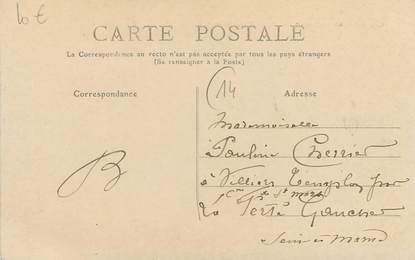 10 €
CARTE POSTALE
La Correspondance au recto n'est pas acceptée par tous les pays étrangers
(Se renseigner à la Poste)
Correspondance
14
Adresse
Mademoiselle
Pauline Cherrier
à Villiers Templon par
St Mars
La Ferté Gaucher
Seine et Marne
B